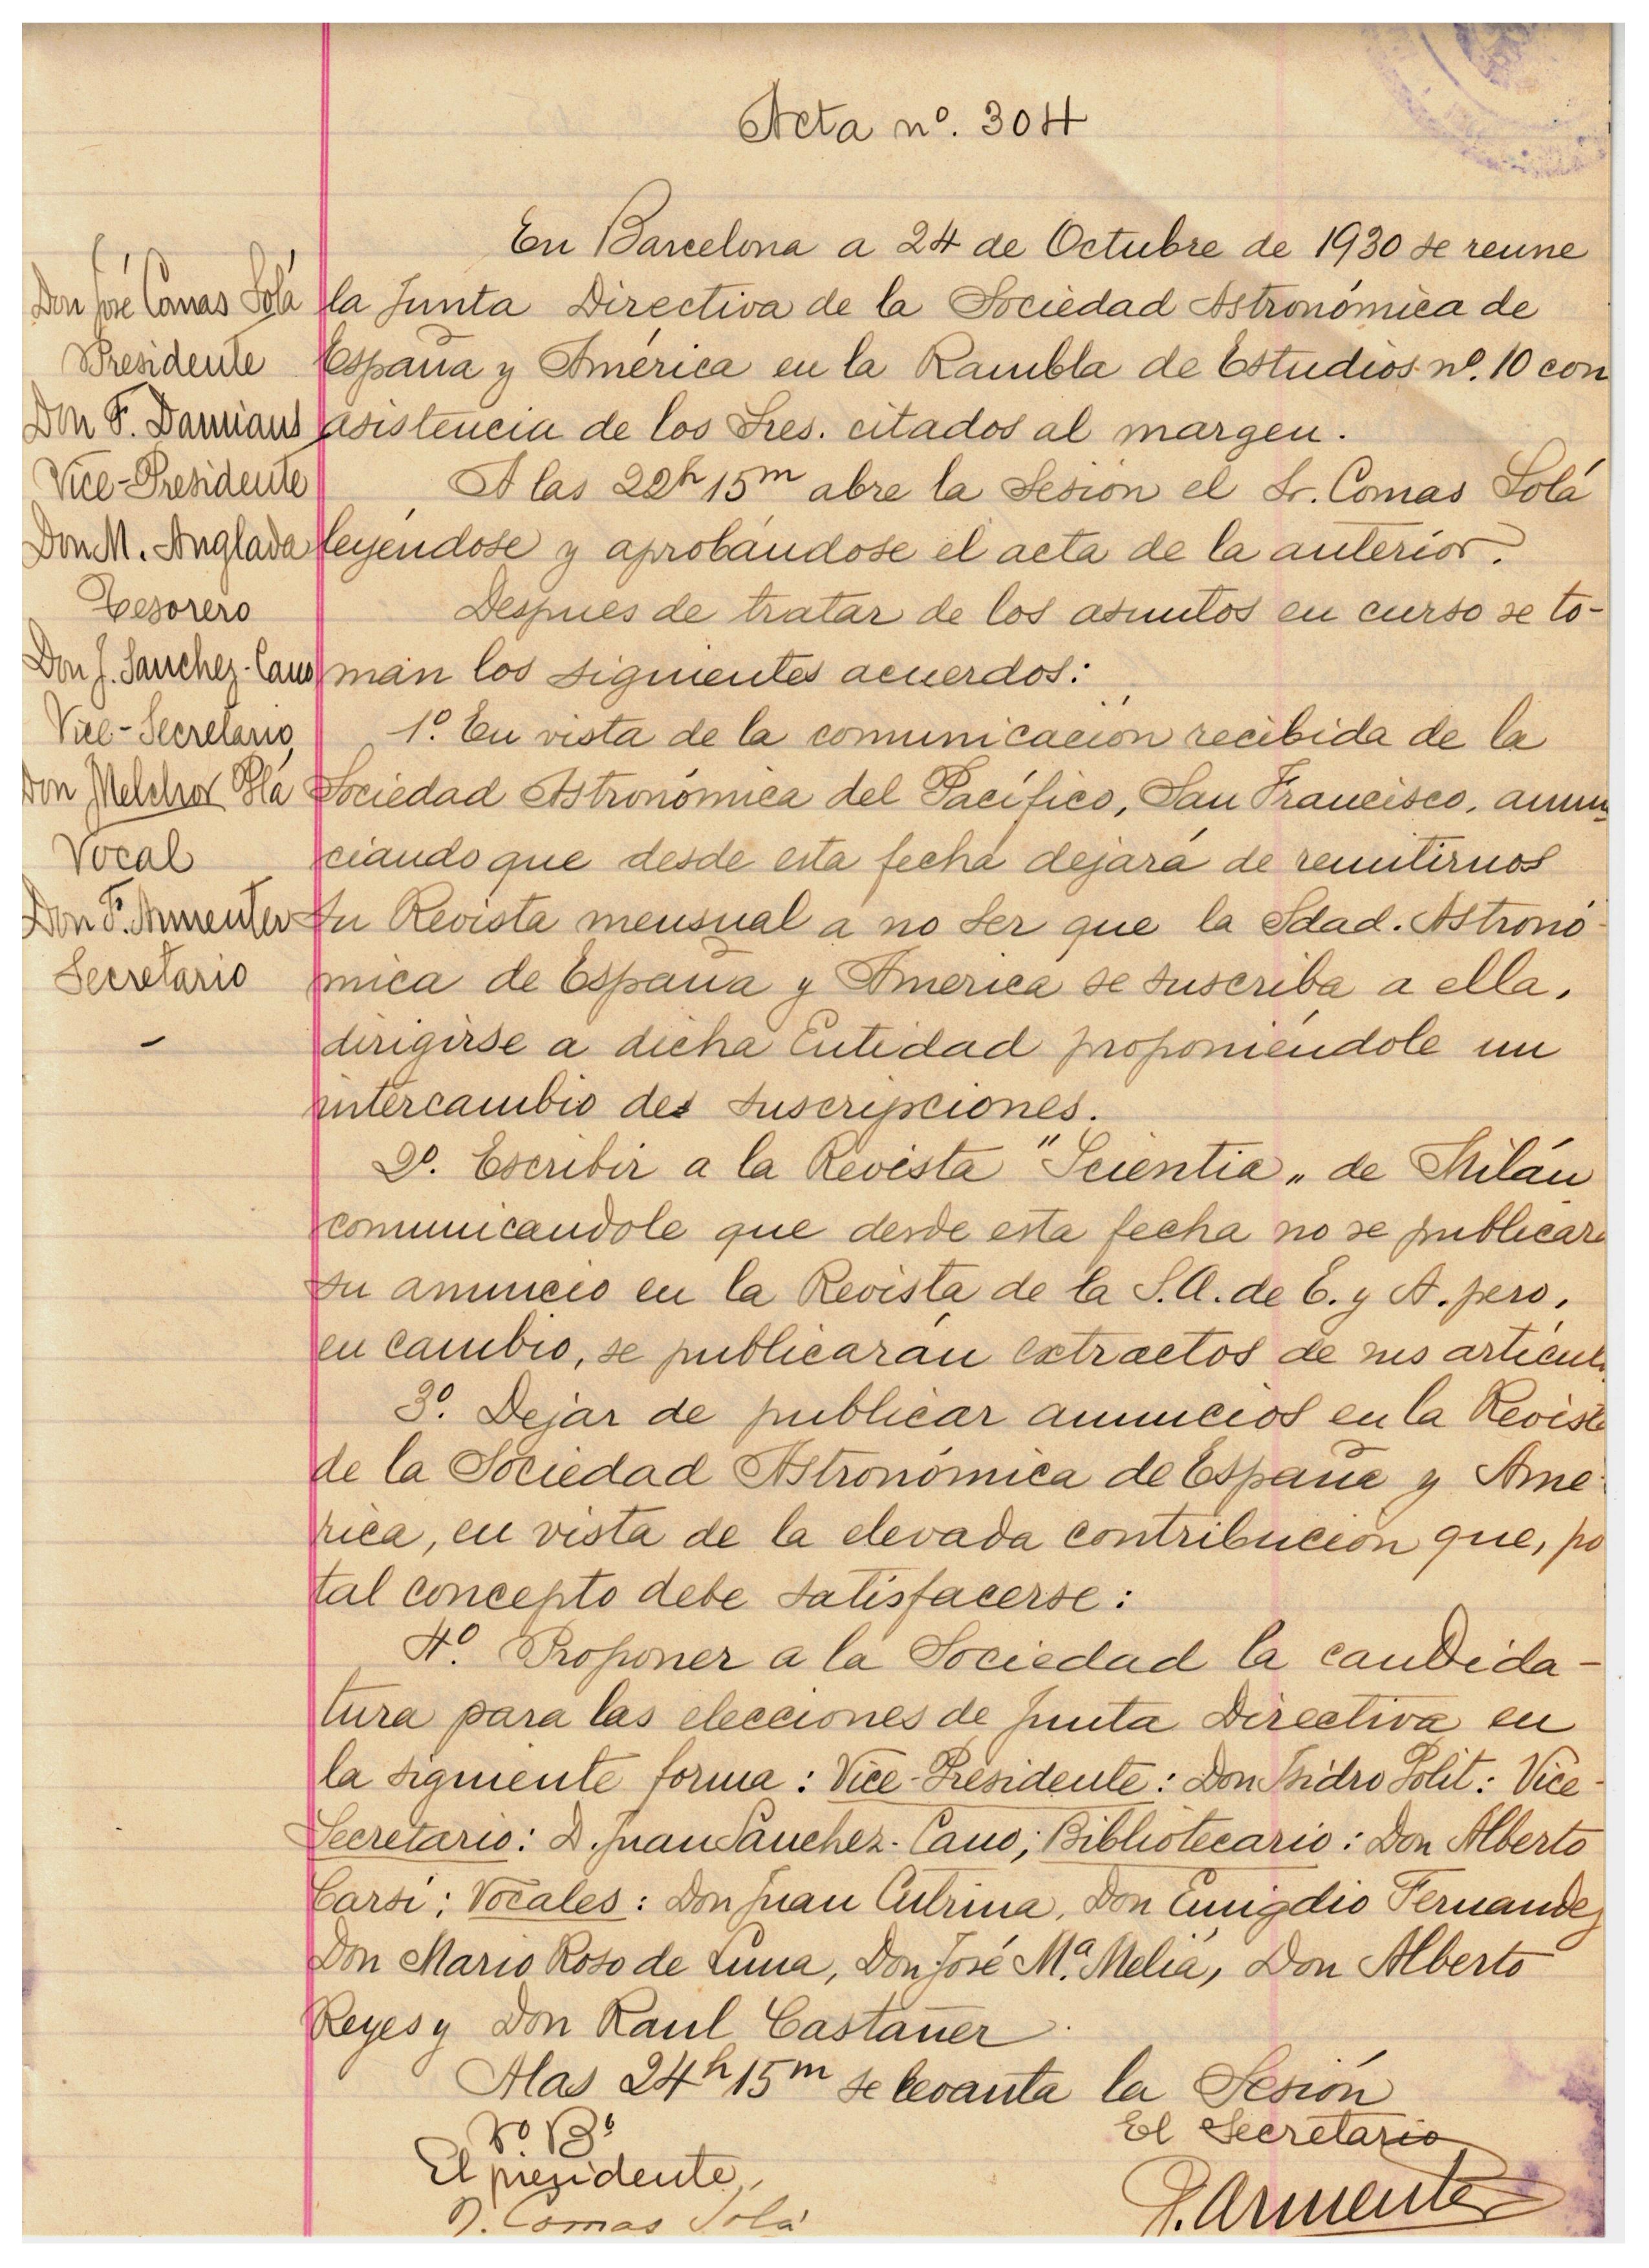 Acta nº. 304
Don José Comas Solá
Presidente
Don F. Damians
Vice-Presidente
Don M. Anglada
Tesorero
Don J. Sanchez-Cano
Vice-Secretario
Don Melchor Plá
Vocal
Don F. Armenter
Secretario
En Barcelona a 24 de Octubre de 1930 se reune
la Junta Directiva de la Sociedad Astronómica de
España y América en la Rambla de Estudios nº. 10 con
asistencia de los Sres. citados al margen.
A las 22h 15m abre la Sesión el Sr. Comas Solá
leyéndose y aprobándose el acta de la anterior.
Despues de tratar de los asuntos en curso se to-
man los siguientes acuerdos:
1º. En vista de la comunicación recibida de la
Sociedad Astronómica del Pacífico, San Francisco, anun-
ciando que desde esta fecha dejará de remitirnos
su Revista mensual a no ser que la Sdad. Astronó-
mica de España y America se suscriba a ella,
dirigirse a dicha Entidad proponiéndole un
intercambio de suscripciones.
2º. Escribir a la Revista "Scientia" de Milán
comunicandole que desde esta fecha no se publicará
su anuncio en la Revista de la S.A. de E. y A. pero,
en cambio, se publicarán extractos de sus articul
3º. Dejar de publicar anuncios en la Revista
de la Sociedad Astronómica de España y Amé-
rica, en vista de la elevada contribución que, po
tal concepto debe satisfacerse:
4º. Proponer a la Sociedad la candida-
tura para las elecciones de Junta Directiva en
la siguiente forma: Vice-Presidente: Don Isidro Polit: Vice-
Secretario: D. Juan Sánchez-Cano; Bibliotecario: Don Alberto
Carsi; Vocales: Don Juan Cutrina, Don Emigdio Fernandez
Don Mario Roso de Luna, Don José Mª. Meliá, Don Alberto
Reyes y Don Raul Castañer.
A las 24h 15m se levanta la Sesión
Vº Bº
El presidente,
J. Comas Solá
El Secretario
F. Armenter